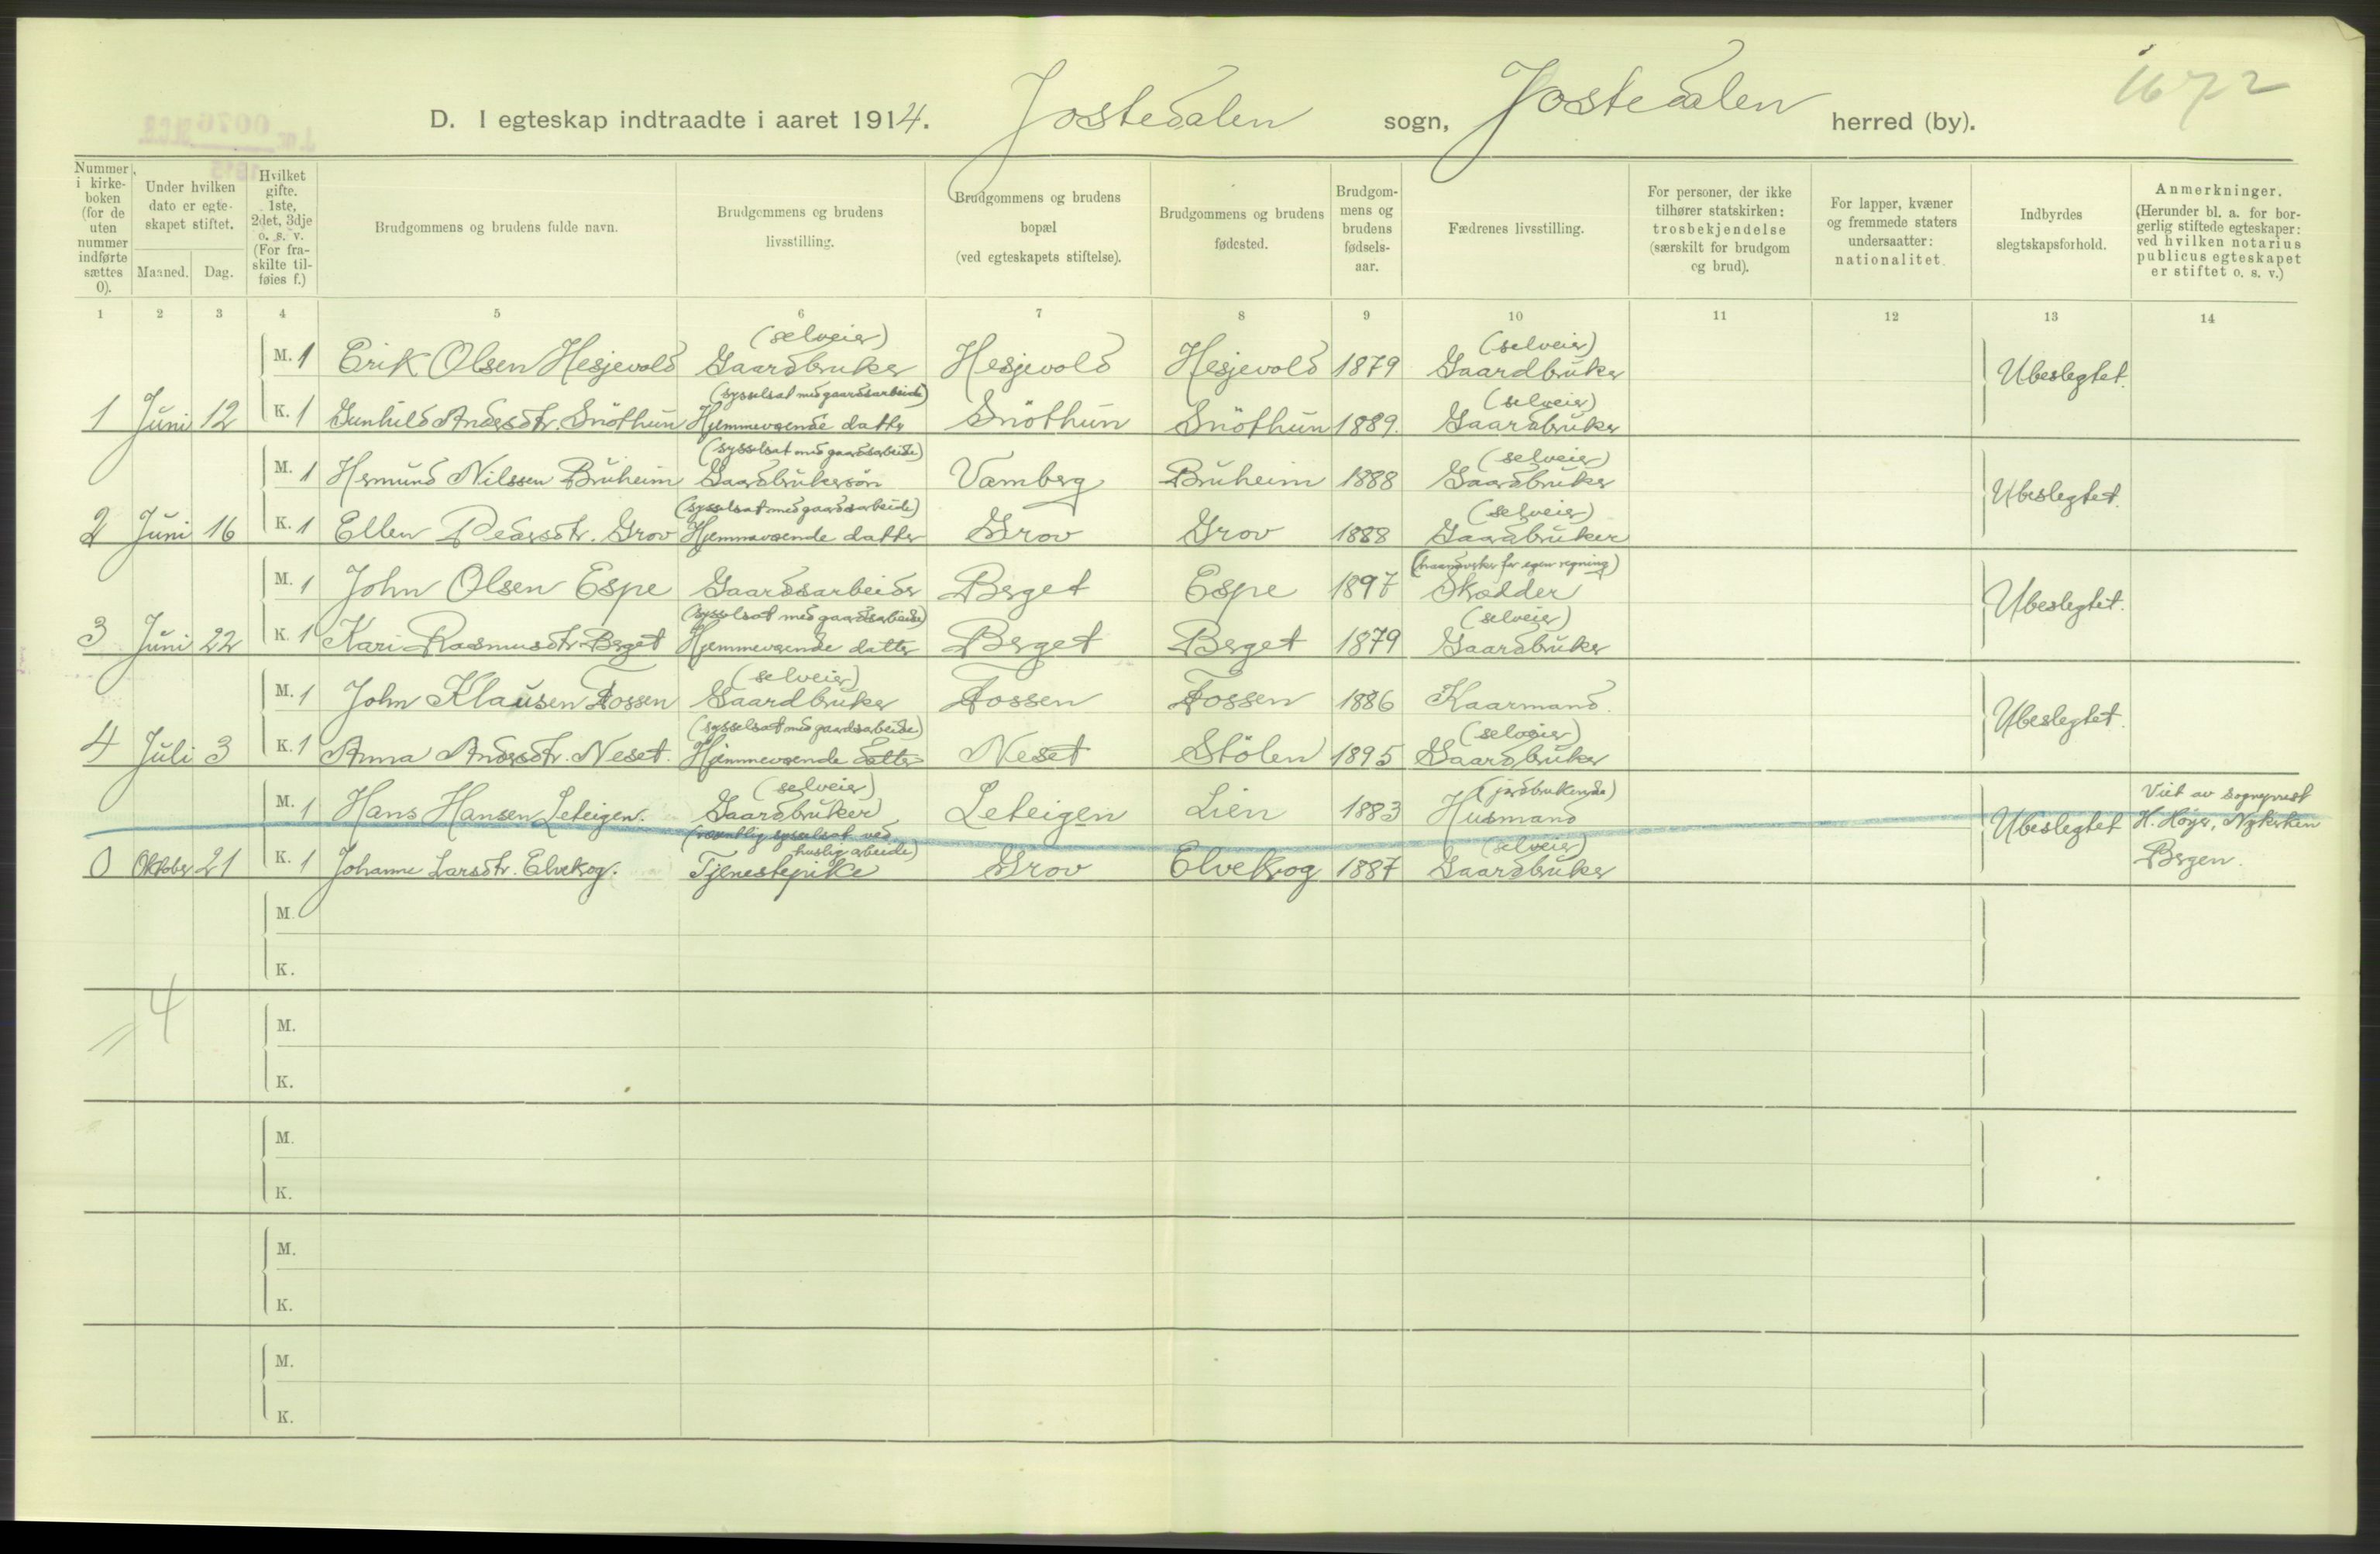 1672
D. I egteskap indtraadte i aaret 1914. Jostedalen sogn, Jostedalen herred (by).
Nummer i kirke-boken (for de uten nummer indførte sættes 0).
Under hvilken dato er egte-skapet stiftet.
Maaned. Dag.
Hvilket gifte. 1ste, 2det, 3dje o. s. v. (For fra-skilte til-føies f.)
Brudgommens og brudens fulde navn.
Brudgommens og brudens livsstilling.
Brudgommens og brudens bopæl (ved egteskapets stiftelse).
Brudgommens og brudens fødested.
Brudgom-mens og brudens fødsels-aar.
Fædrenes livsstilling.
For personer, der ikke tilhører statskirken: trosbekjendelse (særskilt for brudgom og brud).
For lapper, kvæner og fremmede staters undersaatter: nationalitet.
Indbyrdes slegtskapsforhold.
Anmerkninger. (Herunder bl. a. for bor-gerlig stiftede egteskaper: ved hvilken notarius publicus egteskapet er stiftet o. s. v.)
1 2 3 4 5 6 7 8 9 10 11 12 13 14
(selveier) (selveier)
M. 1 Erik Olsen Hesjevold Gaardbruker Hesjevold Hesjevold 1879 Gaardbruker Ubeslegtet.
(sysselsat med gaardsarbeide) (selveier)
1 Juni 12 K. 1 Gunhild Andersdtr. Snöthun Hjemmeværende datter Snöthun Snöthun 1889. Gaardbruker
(sysselsat med gaardsarbeide) (selveier)
M. 1 Hermund Nilssen Bruheim Gaardbrukersön Vamberg Bruheim 1888 Gaardbruker Ubeslegtet.
(sysselsat med gaardsarbeide) (selveier)
2 Juni 16 K. 1 Ellen Pedersdtr. Grov Hjemmeværende datter Grov Grov 1888 Gaardbruker
(haandverker for egen regning)
M. 1 John Olsen Espe Gaardsarbeider Berget Espe 1897 Skrædder Ubeslegtet.
(sysselsat med gaardsarbeide) (selveier)
3 Juni 22 K. 1 Kari Rasmusdtr. Berget Hjemmeværende datter Berget Berget 1879 Gaardbruker
(selveier)
M. 1 John Klausen Fossen Gaardbruker Fossen Fossen 1886 Kaarmand. Ubeslegtet.
(sysselsat med gaardsarbeide) (selveier)
4 Juli 3 K. 1 Anna Andersdtr. Neset. Hjemmeværende datter Neset Stölen 1895 Gaardbruker
(selveier) (jordbrukende) Viet av sogneprest
M. 1 Hans Hansen Leteigen. Gaardbruker Leteigen Lien 1883 Husmand Ubeslegtet H. Höyer, Nykirken
(væsentlig sysselsat ved huslig arbeide) (selveier) Bergen.
0 Oktober 21 K. 1 Johanne Larsdtr. Elvekrog. Tjenestepike Grov Elvekrog 1887 Gaardbruker
M.
K.
4
M.
K.
M.
K.
M.
K.
M.
K.